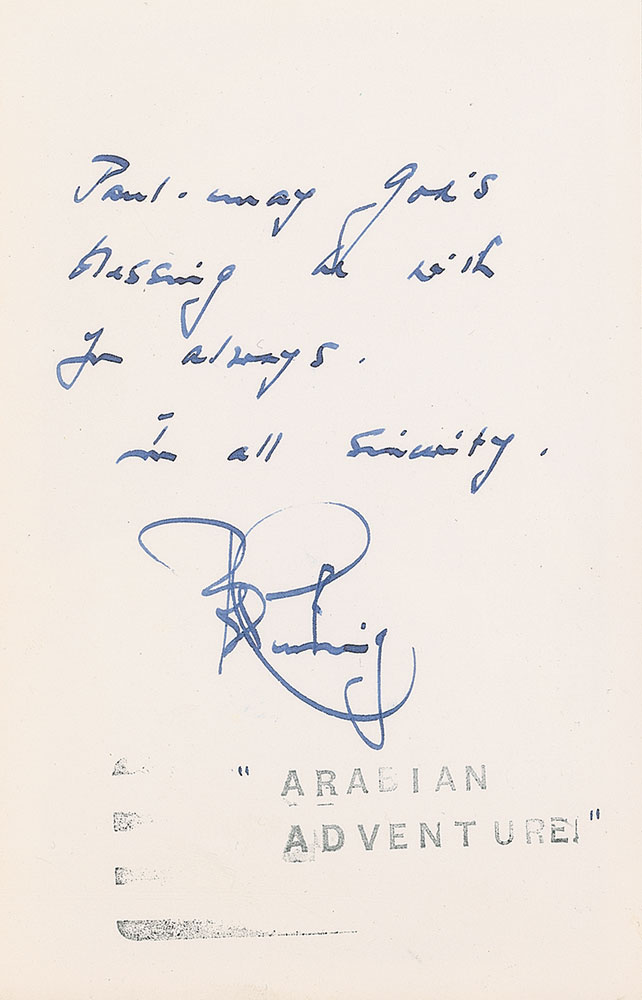 Paul. may God's
blessing be with
you always.
in all sincerity.
" ARABIAN
ADVENTURE"